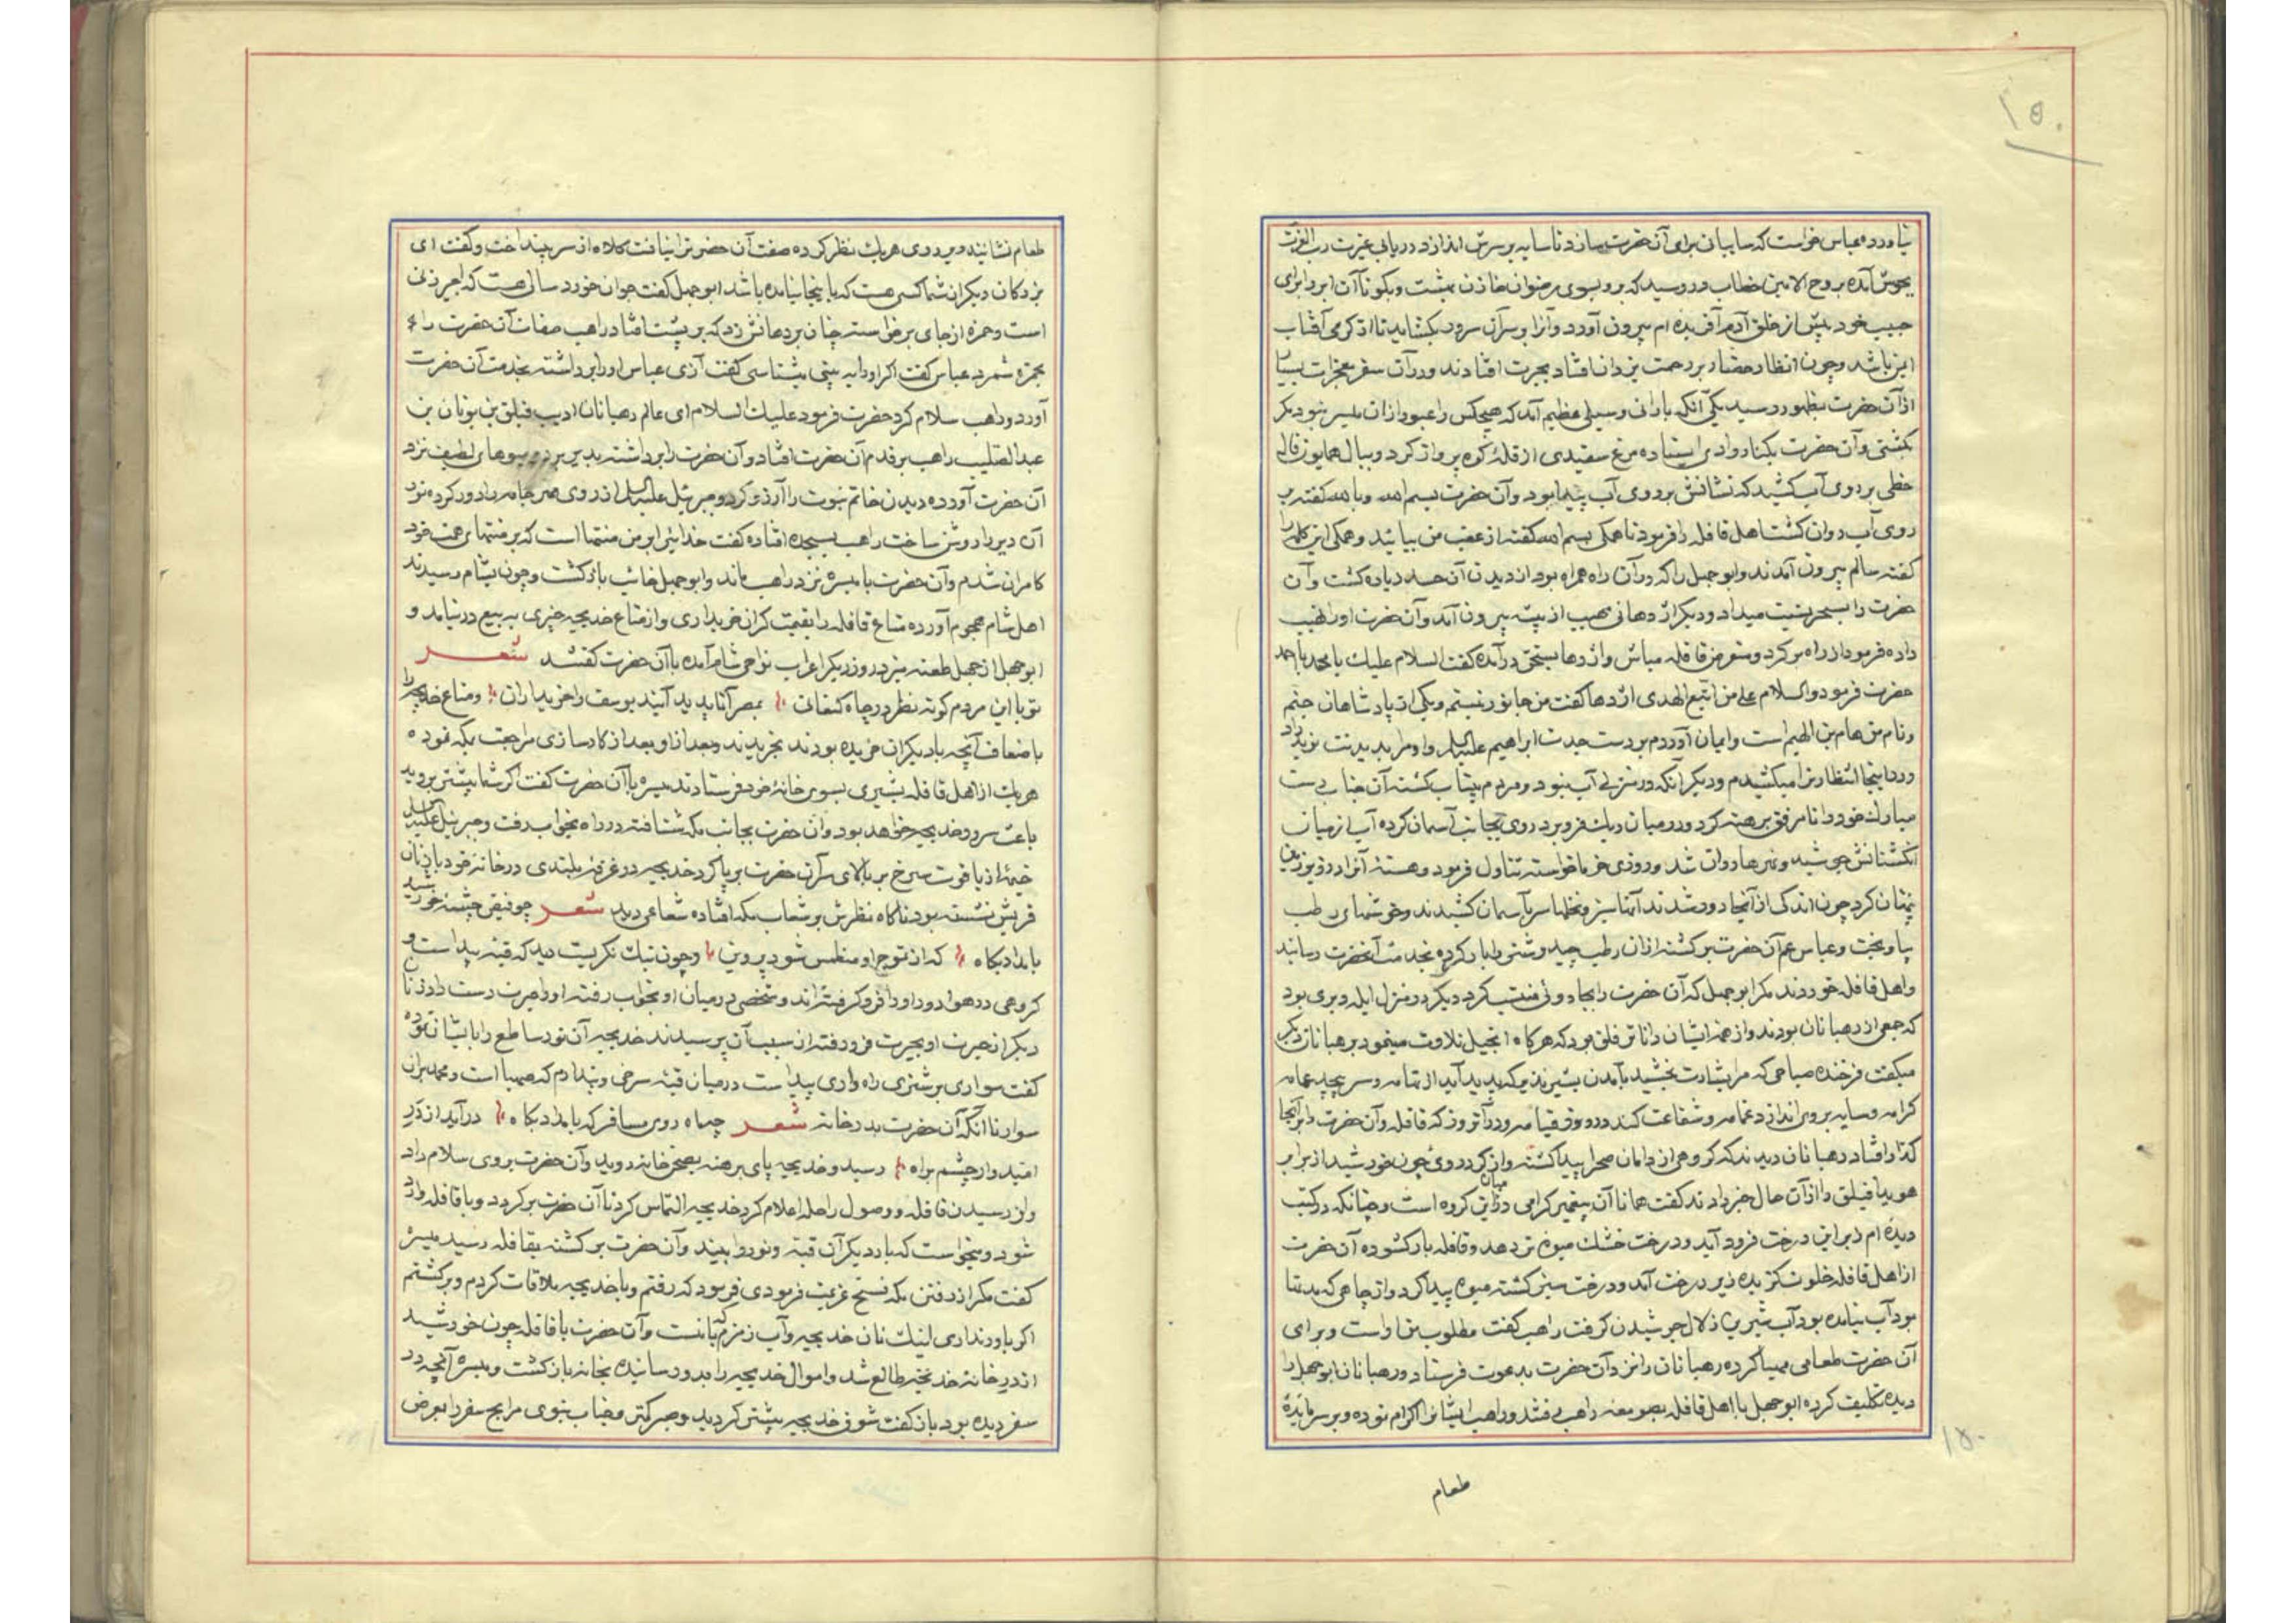 ۱۵۰
نیاورد و عباس خواست که سایبانی برای آن حضرت بسازد تا سایه بر سرش اندازد دریای غیرت رب العزت
بجوش آمده بروح الامین خطاب در رسید که برو بسوی رضوان خازن بهشت و بگو تا آن ابر را برای
حبیب خود پیش از خلق آدم آفریده ام بیرون آورد و آنرا بر سر آن سرور بکشاید تا از گرمی آفتاب
ایمن باشد و چون انظار حضار بر رحمت یزدان افتاد بحیرت افتادند و در آن سفر معجزات بسیار
از آن حضرت بظهور رسید یکی آنکه بارانی و سیلی عظیم آمد که هیچکس را عبور از آن میسر نبود مگر
بکشتی و آن حضرت بکنار وادی ایستاده مرغ سفیدی از قله کوه پرواز کرد و ببال همایون فال
خطی بر روی آب کشید که نشانش بر روی آب پیدا بود و آن حضرت بسم الله و بالله گفته بر
روی آب روان گشت اهل قافله را فرمود تا همگی بسم الله گفته از عقب من بیائید و همگی این کلمه را
گفته سالم بیرون آمدند و ابوجهل را که در آن راه همراه بود از دیدن آن حسد زیاده گشت و آن
حضرت را بسحر نسبت میداد و دیگر اژدهائی مهیب از بیشه بیرون آمد و آن حضرت او را نهیب
داده فرمود از راه برگرد و متعرض قافله مباش و اژدها بسخن درآمده گفت السلام علیک یا محمد یا احمد
حضرت فرمود والسلام علی من اتبع الهدی اژدها گفت من جانور نیستم و یکی از پادشاهان جنم
و نام من هام بن الهیم است و ایمان آوردم بر دست جدت ابراهیم علیه السلام و او مرا بدیدنت نوید داد
در اینجا انتظار ترا میکشیدم و دیگر آنکه در منزلی آب نبود و مردم بیتاب گشته آن جناب دست
مبارک خود را تا مرفق برهنه کرد و در میان ریگ فرو برد روی بجانب آسمان کرده آب از میان
انگشتانش جوشید و نهرها روان شد و روزی خرما خواسته تناول فرمود و هسته آنرا در زیر زمین
پنهان کرد چون اندکی از آنجا دور شدند آنها سبز و نخلها سر بآسمان کشیدند و خوشهای رطب
بیاویخت و عباس عم آن حضرت برگشته از آن رطب چید و شتری را بار کرده بخدمت آنحضرت رسانید
و اهل قافله خوردند مگر ابوجهل که آن حضرت را بجادوئی منتسب کرد دیگر در منزل ایله دیری بود
که جمعی از رهبانان بودند و از همه ایشان داناتر فلیق بود که هرگاه انجیل تلاوت مینمود برهبانان دیگر
میگفت فرخنده صباحی که مرا بشارت بخشید بآمدن بشیر نذیر که پدید آید از تهامه و سر پیچد عمامه
کرامه و سایه بر وی اندازد غمامه و شفاعت کند در روز قیامه و در آن روز که قافله و آن حضرت را بر آنجا
گذار افتاد رهبانان دیدند که گروهی از دامان صحرا پیدا گشته و از گرد روئی چون خورشید از برابر
هویدا فیلق را از آن حال خبر دادند گفت همانا آن پیغمبر گرامی در میان این گروه است و چنانکه در کتب
دیده ام زیر این درخت فرود آید و درخت خشک میوه تر دهد و قافله بار گشوده آن حضرت
از اهل قافله خلوت گزیده زیر درخت آمد و درخت سبز گشته میوه پیدا کرد و از چاهی که مدتها
بود آب نیامده بود آب شیرین زلال جوشیدن گرفت راهب گفت مطلوب من اوست و برای
آن حضرت طعامی مهیا کرده رهبانان را نزد آن حضرت بدعوت فرستاد و رهبانان ابوجهل را
دیده تکلیف کرده ابوجهل با اهل قافله بصومعه راهب رفتند و راهب ایشانرا اکرام نموده و بر سر مائده
۱۵۰
طعام
طعام نشانیده و بر روی هریک نظر کرده صفت آن حضرت را نیافت کلاه از سر بینداخت و گفت ای
بزرگان دیگر از شما کسی هست که باینجا نیامده باشد ابوجهل گفت جوان خورد سالی هست که اجیر زنی
است و حمزه از جای برخواسته چنان بر دهانش زد که بر پشت افتاد و راهب صفات آن حضرت را
بحمزه شمرد عباس گفت اگر او را ببینی میشناسی گفت آری عباس او را برداشته بخدمت آن حضرت
آورد و راهب سلام کرد حضرت فرمود علیک السلام ای عالم رهبانان ادیب فیلق بن یونان بن
عبد الصلیب راهب بر قدم آن حضرت افتاد و آن حضرت را برداشته بدیر برد و میوهای لطیف نزد
آن حضرت آورده دیدن خاتم نبوت را آرزو کرد و جبرئیل علیه السلام از روی مهر جامه را دور کرده نور
آن دیر را روشن ساخت راهب بسجده افتاده گفت خدایرا بر من منتها است که بر منتهای همت خود
کامران شدم و آن حضرت با میسره نزد راهب ماند و ابوجهل خائب بازگشت و چون بشام رسیدند
اهل شام هجوم آورده متاع قافله را بقیمت گران خریداری و از متاع خدیجه چیزی به بیع در نیامد و
ابوجهل از جهل طعنه میزد روز دیگر اعراب نواحی شام آمده با آن حضرت گفتند شعر
تو با این مردم کوته نظر در چاه کنعانی بمصر آ تا پدید آیند یوسف را خریداران و متاع خدیجه را
باضعاف آنچه با دیگران خریده بودند بخریدند و بعد از او بعد از کارسازی مراجعت بمکه نموده
هریک از اهل قافله بشیری بسوی خانه خود فرستادند میسره با آن حضرت گفت اگر شما پیشتر بروید
باعث سرور خدیجه خواهد بود و آن حضرت بجانب مکه شتافته در راه بخواب رفت و جبرئیل علیه السلام
خیمه از یاقوت سرخ بر بالای سر آن حضرت برپا کرد خدیجه در غرفه بلندی در خانه خود با زنان
قریش نشسته بود ناگاه نظرش بر شعاب مکه افتاده شعاعی دید شعر چو فیض چشمه خورشید
بامدادیگاه که از تموج او منطمس شود پروین و چون نیک نگریست دید که قبه پیدا است و
گروهی در هوا دور او را فرو گرفته اند و شخصی در میان او بخواب رفته او را حیرت دست داد زنان
دیگر از حیرت او بحیرت فرو رفته از سبب آن پرسیدند خدیجه آن نور ساطع را بایشان نموده
گفت سواری بر شتری راهواری پیدا است در میان قبه سرخی و پندارم که صهبا است و محمد بر آن
سوار تا آنکه آن حضرت بدر خانه شعر چو ماه روی مسافر که بامدادیگاه درآید از در
امیدوار چشم براه رسید و خدیجه پای برهنه بصحن خانه دوید و آن حضرت بر وی سلام داد
و از رسیدن قافله و وصول راحله اعلام کرد خدیجه التماس کرد تا آن حضرت برگردد و با قافله وارد
شود و میخواست که بار دیگر آن قبه و نور را ببیند و آن حضرت برگشته بقافله رسید میسره
گفت مگر از رفتن مکه فسخ عزیمت فرمودی فرمود که رفتم و با خدیجه ملاقات کردم و برگشتم
اگر باور نداری اینک نان خدیجه و آب زمزم که با منست و آن حضرت با قافله چون خورشید
از در خانه خدیجه طالع شد و اموال خدیجه را بدو رسانیده بخانه بازگشت و میسره آنچه در
سفر دیده بود باز گفت شوق خدیجه بیشتر گردید و صبر کمتر و جناب نبوی مرابح سفر را بعرض